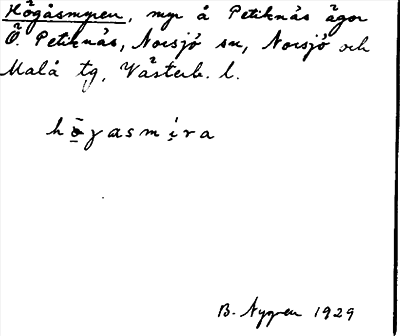 Högåsmyren, myr å Petiknäs ägor
Ö. Petiknäs, Norsjö sn, Norsjö och
Malå tg, Västerb. l.
hö̱γasmịra
B. Nygren 1929